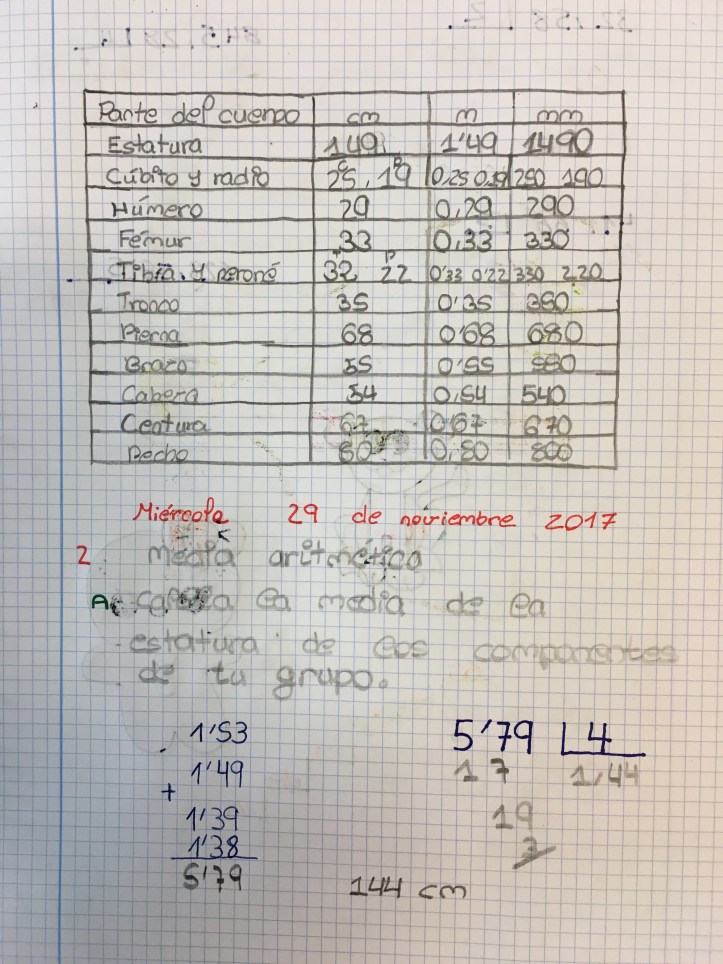 Parte del cuerpo cm m mm
Estatura 149 1'49 1490
Cúbito y radio 25, 19 0,25 0,19 250 190
Húmero 29 0,29 290
Fémur 33 0,33 330
Tibia y peroné 32 22 0'33 0'22 330 220
Tronco 35 0'35 350
Pierna 68 0'68 680
Brazo 55 0'55 550
Cabeza 54 0,54 540
Centura 67 0,67 670
Pecho 80 0,80 800
Miércole 29 de noviembre 2017
2 média aritmética
A la media de la
estatura de los componentes
de tu grupo.
1'53 5'79 4
+ 1'49 17 1,44
1'39 19
1'38 3
5'79 144 cm